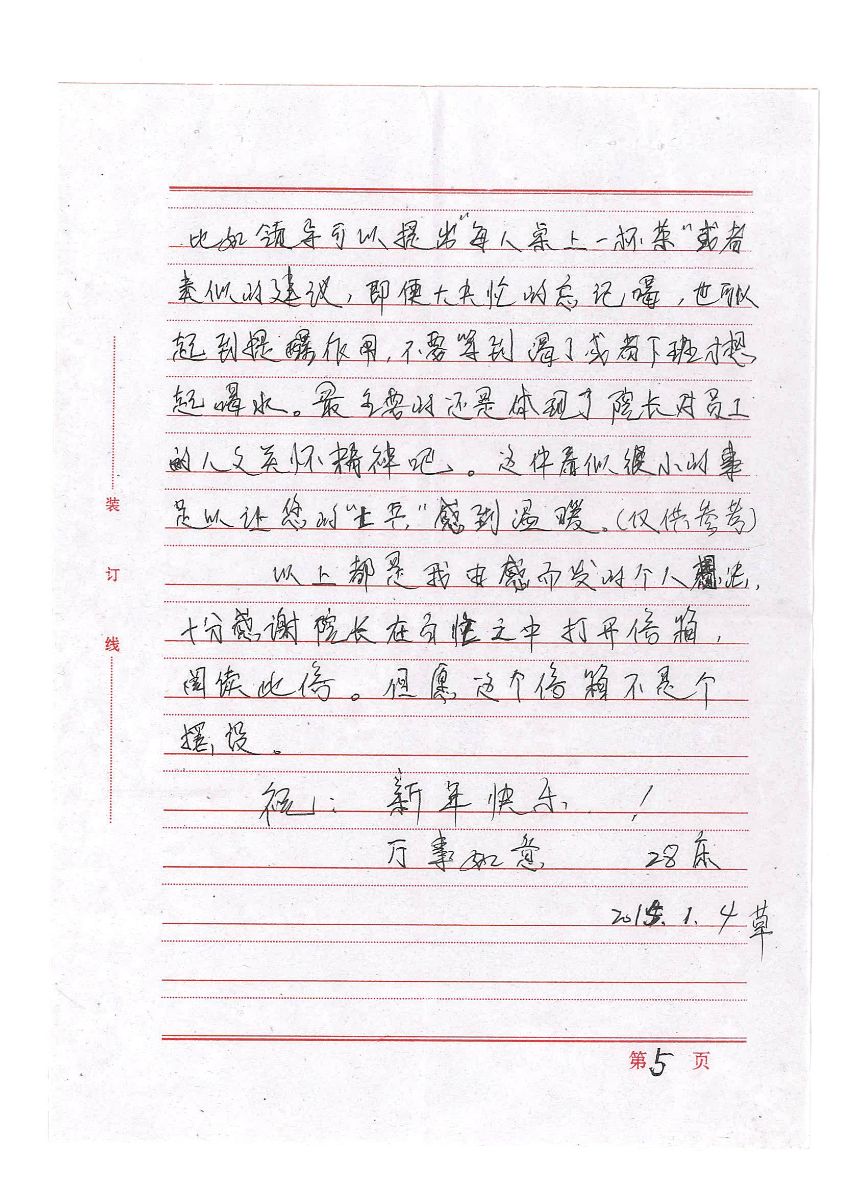 比如领导可以提出“每人桌上一杯茶”或者
类似的建议，即便大夫忙的忘记喝，也可以
起到提醒作用，不要等到渴了或者下班才想
起喝水。最主要的还是体现了院长对员工
的人文关怀精神吧。这件看似很小的事
足以让您的“士兵”感到温暖。（仅供参考）
以上都是我由感而发的个人想法，
十分感谢院长在百忙之中打开信箱，
阅读此信。但愿这个信箱不是个
摆设。
祝：新年快乐！
万事如意 28床
2015.1.4草
装
订
线
第5页